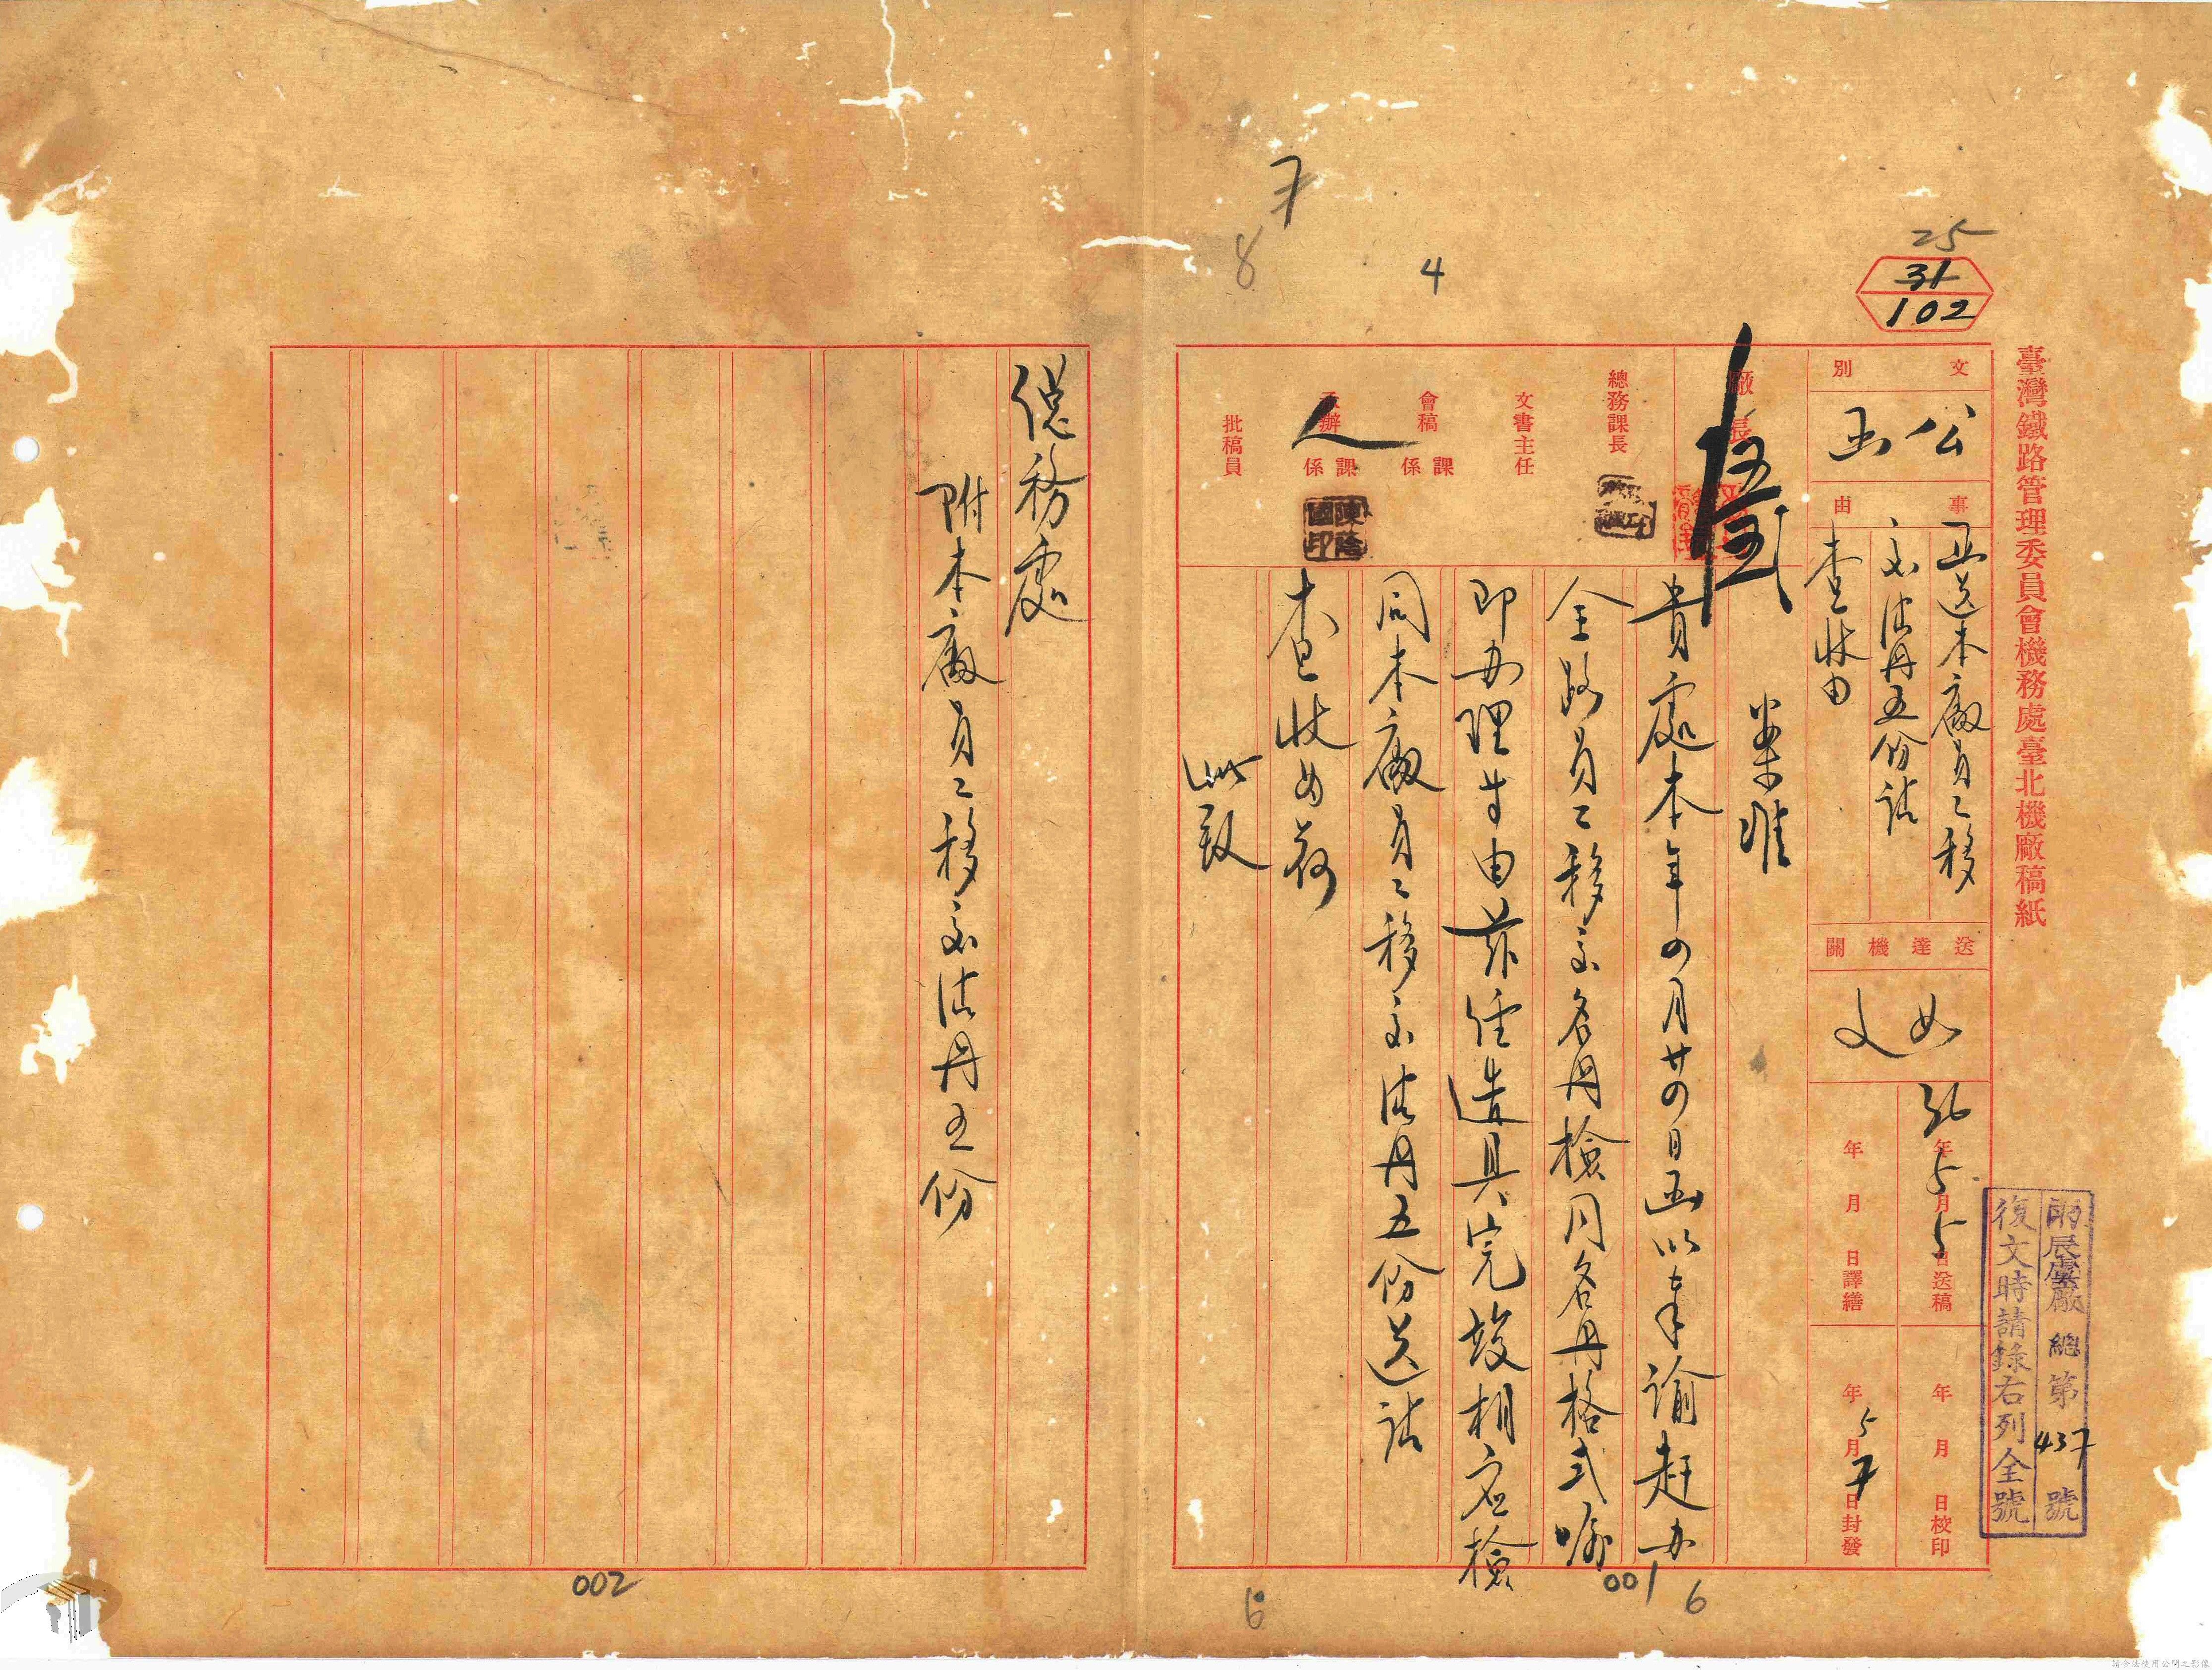 臺灣鐵路管理委員會機務處臺北機廠稿紙
25
31
102
文別
公函
事由
函送本廠員工移
交清冊五份請
查收由
送達機關
如文
36年5月5日送稿
年月日譯繕
年月日校印
年5月7日封發
廠總第437號
復文時請錄右列全號
廠長
總務課長
文書主任
會稿課係
承辦課係
批稿員
人
陳隆國印
7
8
4
案准
貴處本年四月廿四日函以奉諭赶办
全路員工移交名冊檢同名冊格式囑
即办理等由茲經造具完竣相应檢
同本廠員工移交清冊五份送請
查收為荷
此致
總務處
附本廠員工移交清冊五份
001
002
6
6
請合法使用公開之影像